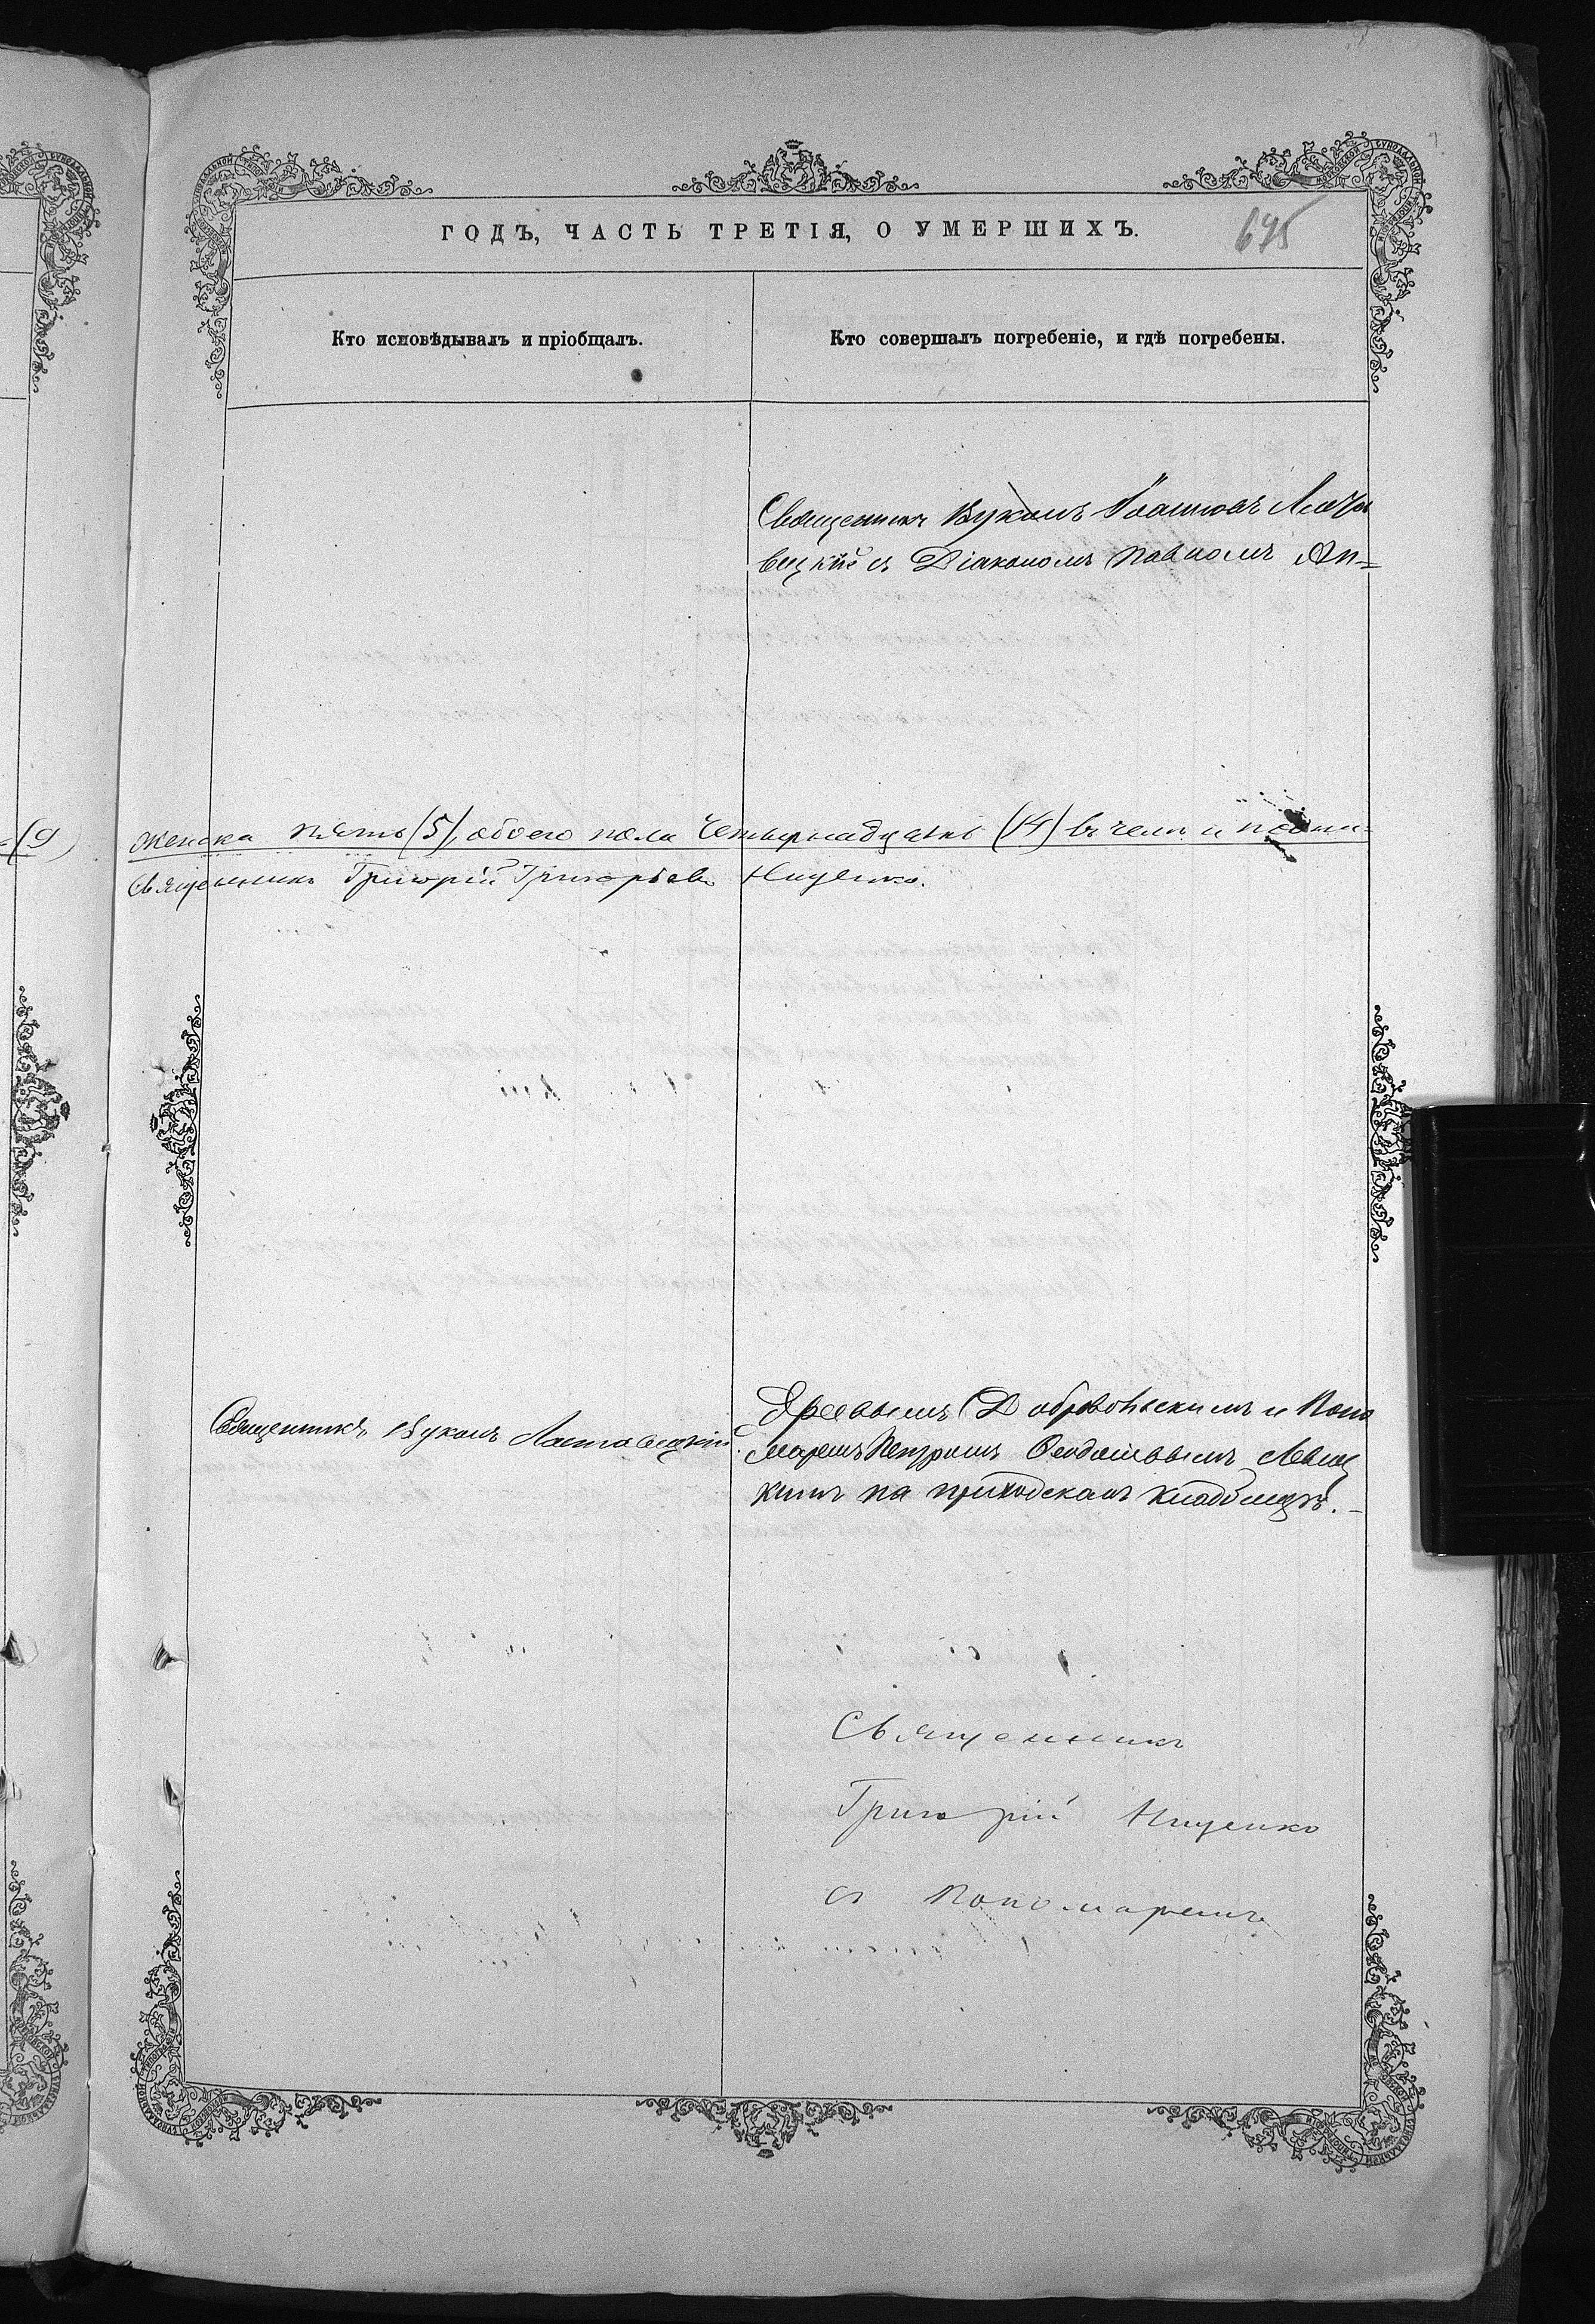 ГОДЪ, ЧАСТЬ ТРЕТІЯ, О УМЕРШИХЪ.
695
Кто исповѣдывалъ и пріобщалъ.
Кто совершалъ погребеніе, и гдѣ погребены.
Священникъ Вуколъ Іоанновъ
вецкій съ Діакономъ Павломъ Ан=
(9
женска пять (5), обоего пола четырнадцать (14) въ чемъ и подпи=
Священникъ Григорій Григорьевъ Нищенко.
Священникъ Вуколъ Ластавецкій.
дреевымъ Добровольскимъ и Поно
маремъ Петромъ
кимъ на приходскомъ кладбищѣ.
Священникъ
Григорій Нищенко
съ Пономаремъ